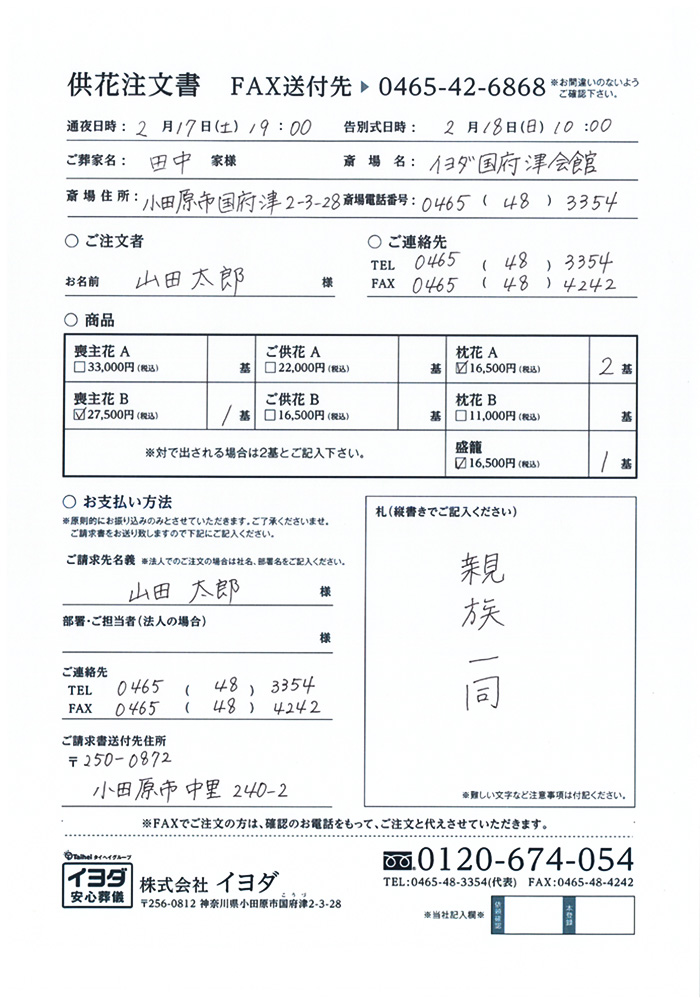 供花注文書 FAX送付先 ▶ 0465-42-6868 ※お間違いのないよう
ご確認下さい。
通夜日時: 2 月 17 日(土) 19:00 告別式日時: 2 月 18 日(日) 10:00
ご葬家名: 田中 家様 斎場名: イヨダ国府津会館
斎場住所: 小田原市国府津2-3-28 斎場電話番号: 0465 ( 48 ) 3354
○ ご注文者 ○ ご連絡先
TEL 0465 ( 48 ) 3354
お名前 山田 太郎 様 FAX 0465 ( 48 ) 4242
○ 商品
喪主花 A ご供花 A 枕花 A
□33,000円(税込) 基 □22,000円(税込) 基 ☑16,500円(税込) 2 基
喪主花 B ご供花 B 枕花 B
☑27,500円(税込) 1 基 □16,500円(税込) 基 □11,000円(税込) 基
※対で出される場合は2基とご記入下さい。 盛籠
☑16,500円(税込) 1 基
○ お支払い方法
※原則的にお振り込みのみとさせていただきます。ご了承くださいませ。
ご請求書をお送り致しますので下記にご記入ください。
ご請求先名義 ※法人でのご注文の場合は社名、部署名をご記入ください。
山田 太郎 様
部署・ご担当者(法人の場合)
様
ご連絡先
TEL 0465 ( 48 ) 3354
FAX 0465 ( 48 ) 4242
ご請求書送付先住所
〒250-0872
小田原市中里 240-2
札(縦書きでご記入ください)
親族一同
※難しい文字など注意事項は付記ください。
※FAXでご注文の方は、確認のお電話をもって、ご注文と代えさせていただきます。
Taihei タイヘイグループ
イヨダ
安心葬儀
株式会社 イヨダ
こうづ
〒256-0812 神奈川県小田原市国府津2-3-28
0120-674-054
TEL:0465-48-3354(代表) FAX:0465-48-4242
※当社記入欄※ 依頼確認 本登録